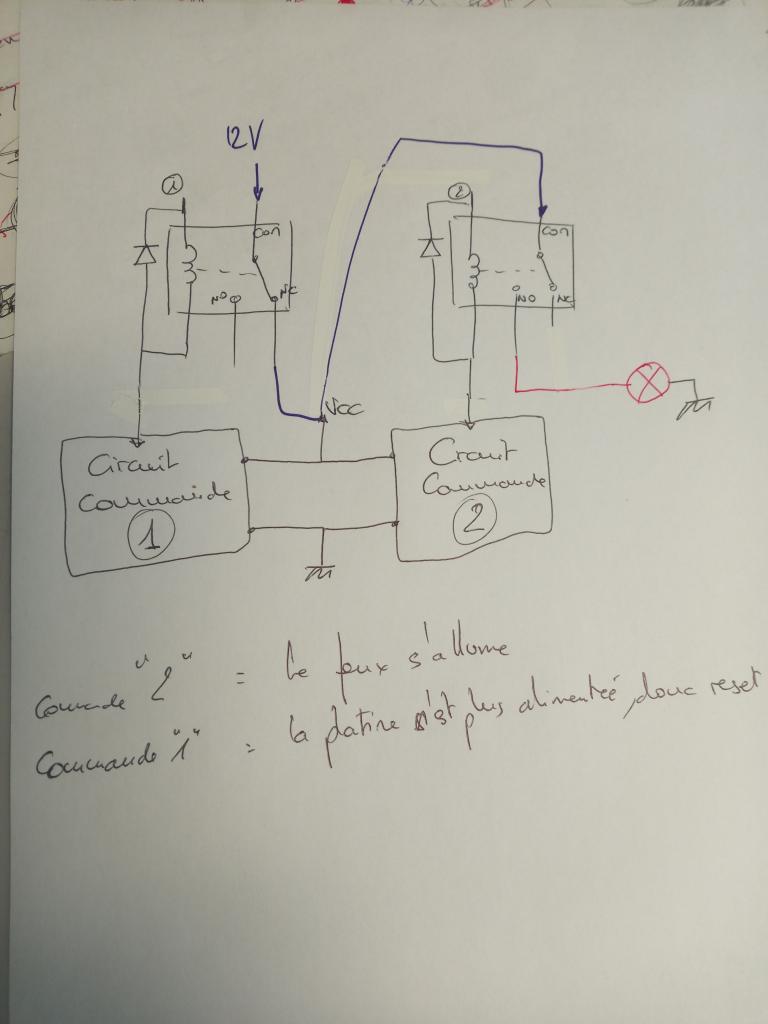 12V
1
2
COM
COM
NO
NC
NO
NC
VCC
Circuit
Commande
1
Circuit
Commande
2
Commande "2" = Le feux s'allume
Commande "1" = la platine n'est plus alimenteé, donc reset